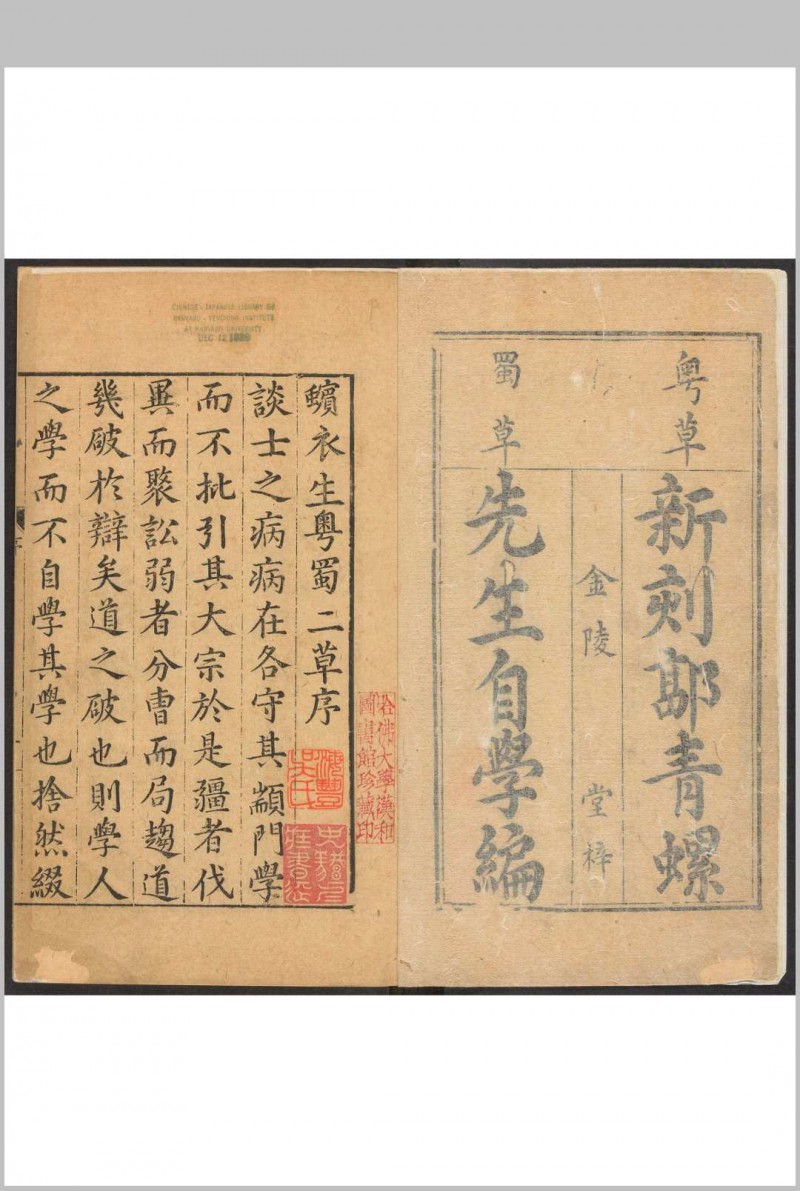 粤草
蜀草
新刻郭青螺
金陵 堂梓
先生自學編
CHINESE-JAPANESE LIBRARY OF
HARVARD-YENCHING INSTITUTE
AT HARVARD UNIVERSITY
DEC 12
哈佛大學漢和
圖書館珍藏印
蠙衣生粤蜀二草序
談士之病病在各守其顓門學
而不批引其大宗於是彊者伐
異而聚訟弱者分曹而局趨道
幾破於辯矣道之破也則學人
之學而不自學其學也捨然綴